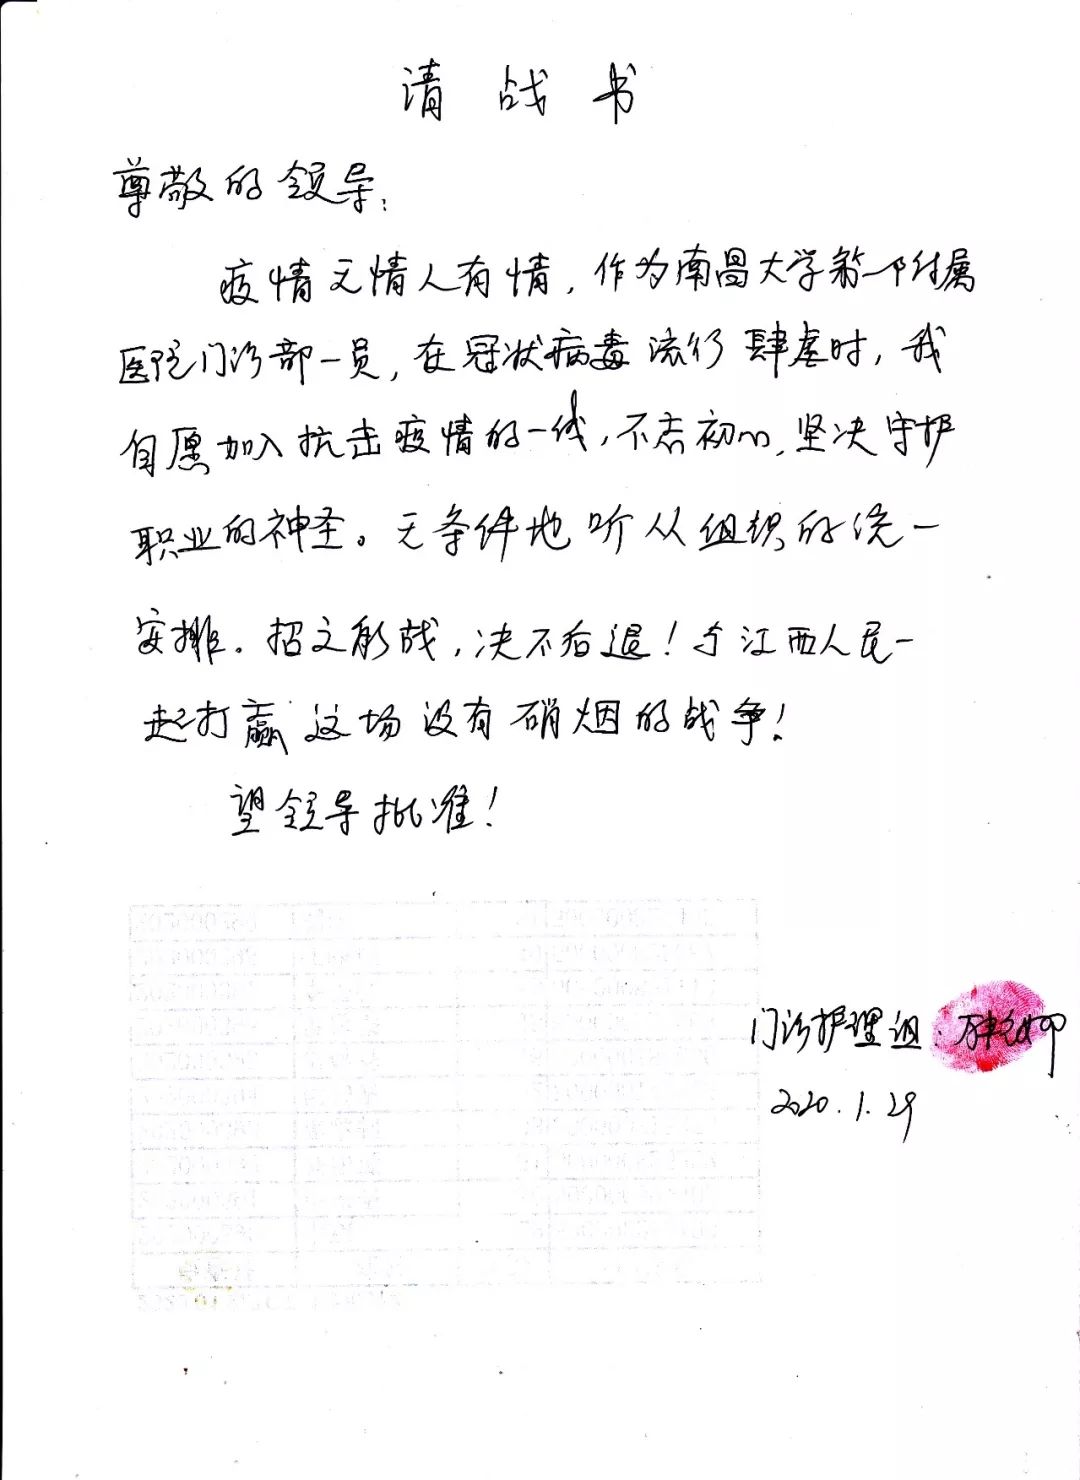 请战书
尊敬的领导:
疫情无情人有情，作为南昌大学第一附属
医院门诊部一员，在冠状病毒流行肆虐时，我
自愿加入抗击疫情的一线，不忘初心，坚决守护
职业的神圣。无条件地听从组织的统一
安排。招之能战，决不后退！与江西人民一
起打赢这场没有硝烟的战争！
望领导批准！
门诊护理组:
2020.1.29